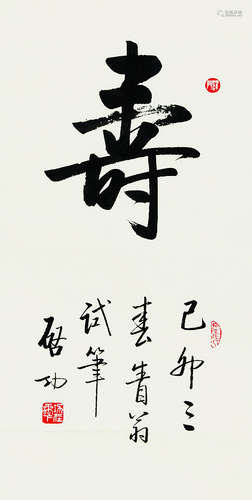 壽
己卯三
春眚翁
試筆
啓功